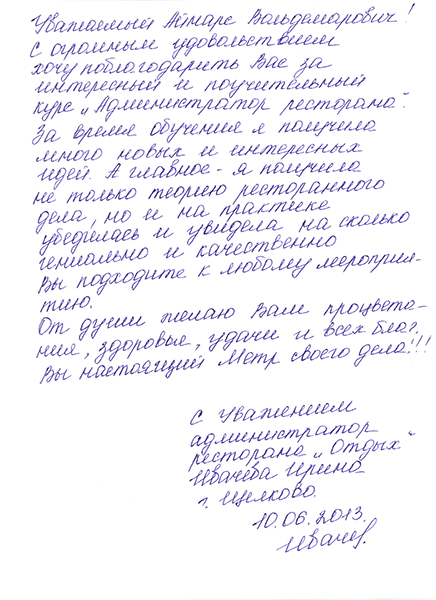 Уважаемый Айтарс Вальдемарович!
С огромным удовольствием
хочу поблагодарить Вас за
интересный и поучительный
курс „Администратор ресторана".
За время обучения я получила
много новых и интересных
идей. А главное - я получила
не только теорию ресторанного
дела, но и на практике
убедилась и увидела на сколько
гениально и качественно
Вы подходите к любому мероприя-
тию.
От души желаю Вам процвета-
ния, здоровья, удачи и всех благ.
Вы настоящий Мэтр своего дела!!!
С Уважением
администратор
ресторана „Отдых"
Ивачёва Ирина
г. Щелково.
10.06.2013.